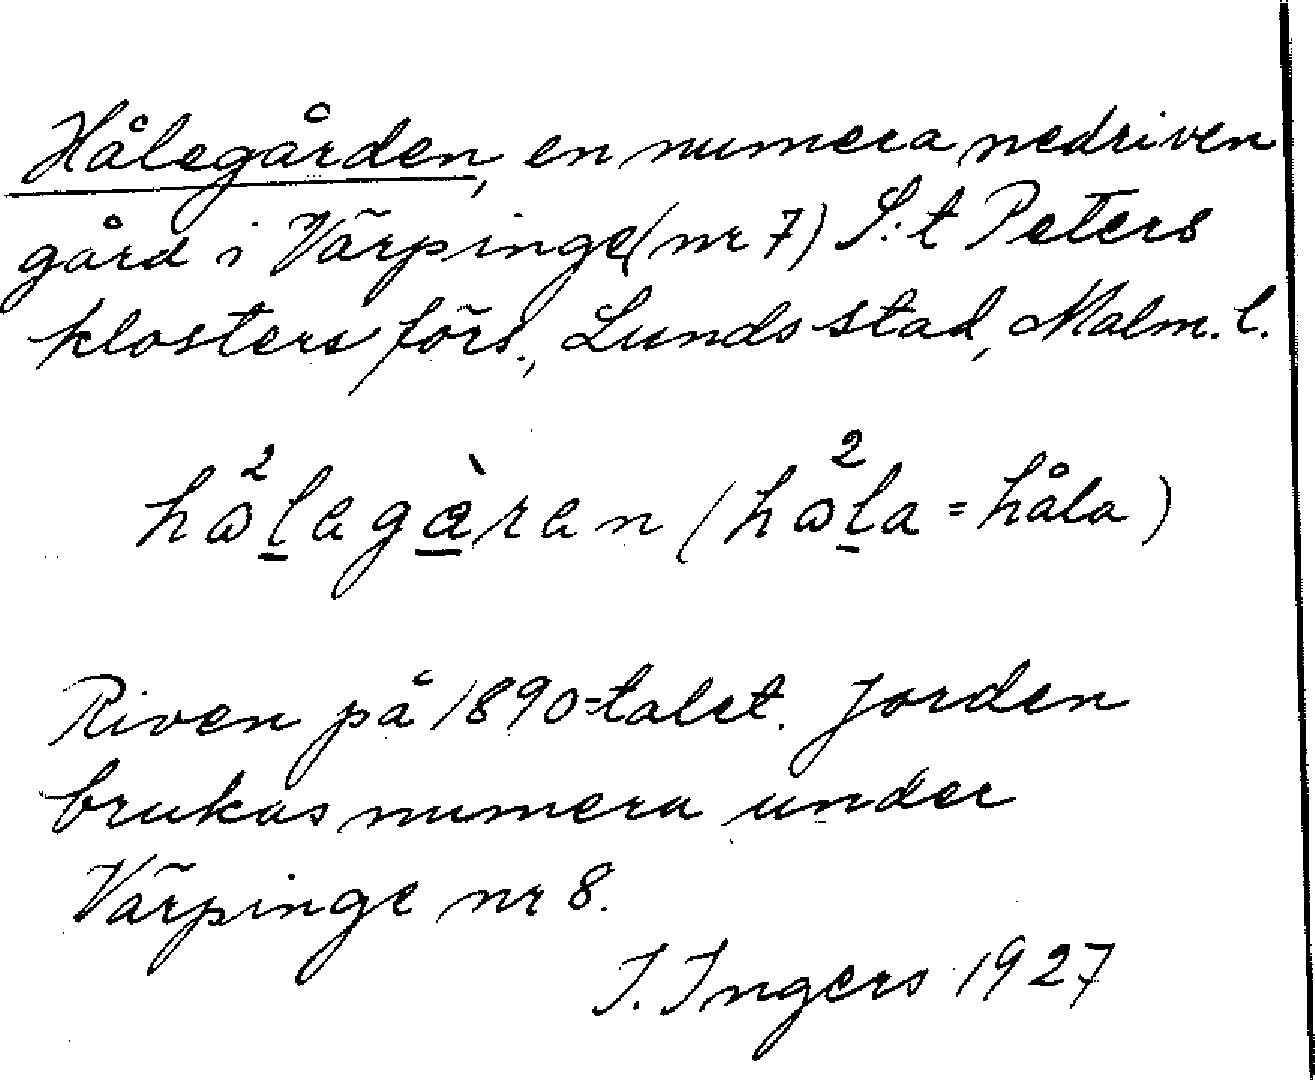 Hålegården, en numera nedriven
gård i Värpinge (nr 7) S:t Peters
klosters förs., Lunds stad, Malm. l.
(håla = håla)
Riven på 1890-talet. Jorden
brukas numera under
Värpinge nr 8.
I. Ingers 1927